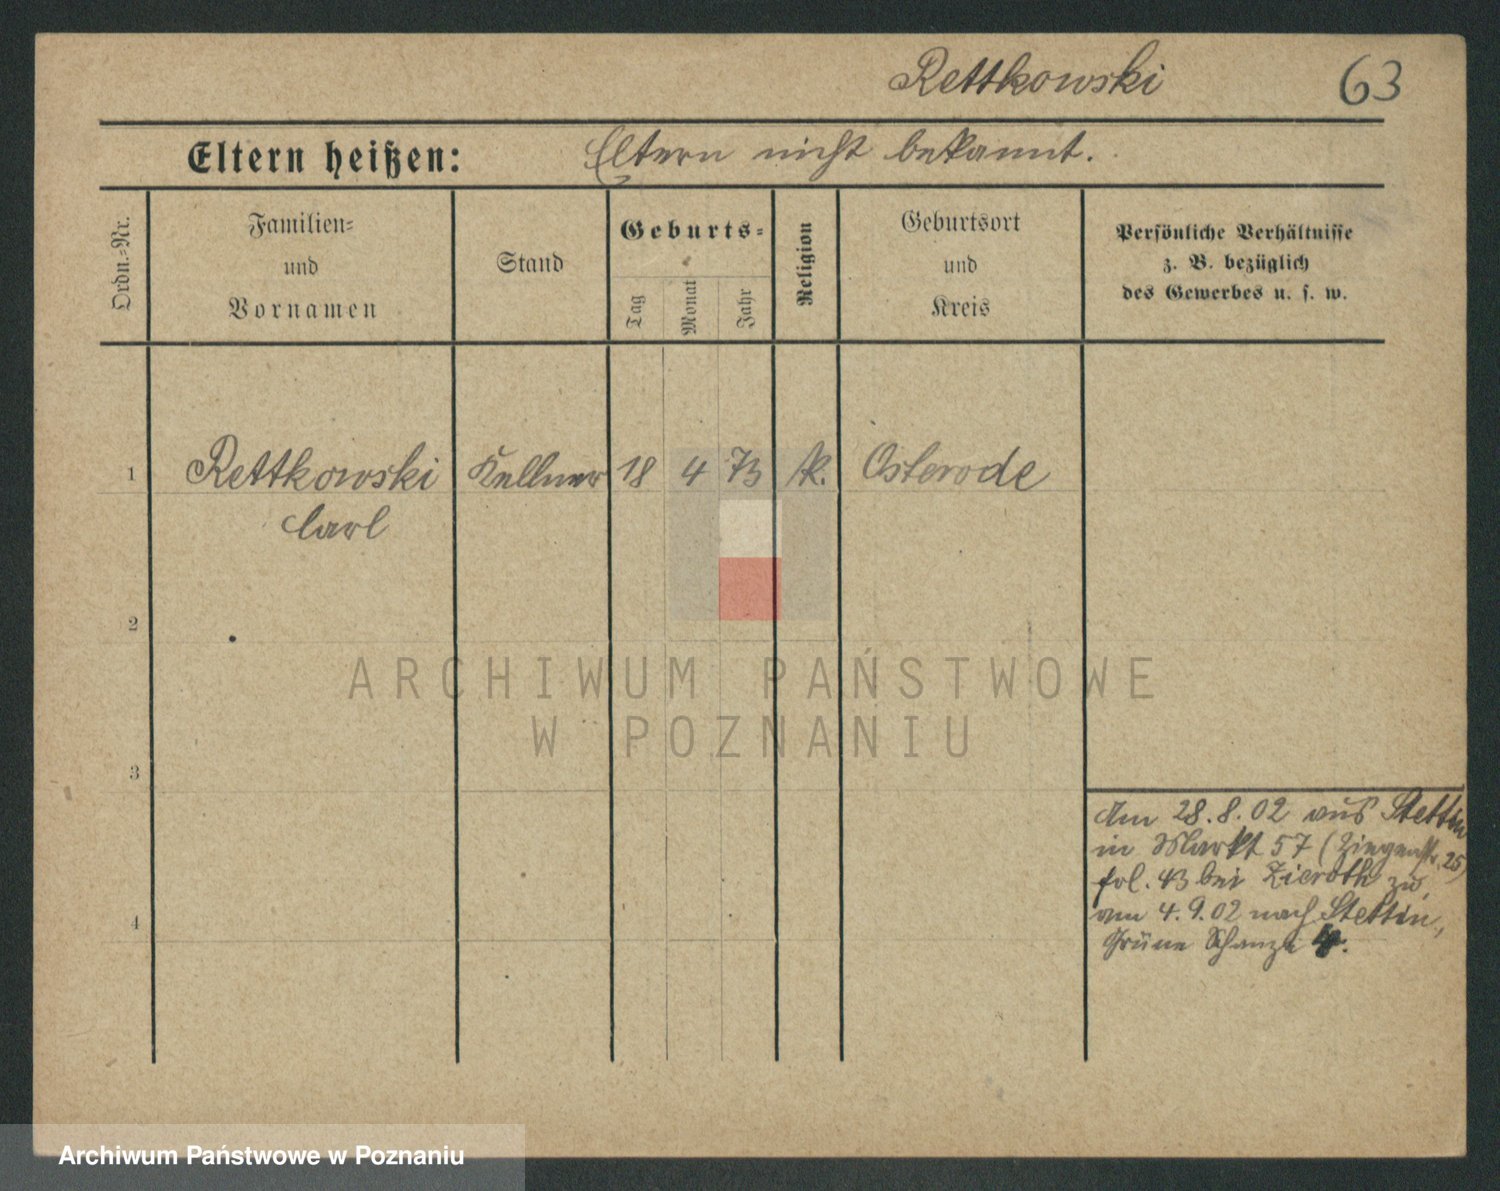 Rettkowski 63
Eltern heißen: Eltern nicht bekannt.
Ordn.-Nr.
Familien-
und
Vornamen
Stand
Geburts-
Tag
Monat
Jahr
Religion
Geburtsort
und
Kreis
Persönliche Verhältnisse
z. B. bezüglich
des Gewerbes u. s. w.
1 Rettkowski Kellner 18 4 73 k. Osterode
Carl
2
3
4
Am 28.8.02 aus Stettin
in Markt 57 (Ziegenstr. 25)
fol. 43 bei Zieroth zu,
am 4.9.02 nach Stettin,
Grüne Schanze
ARCHIWUM PAŃSTWOWE
W POZNANIU
Archiwum Państwowe w Poznaniu